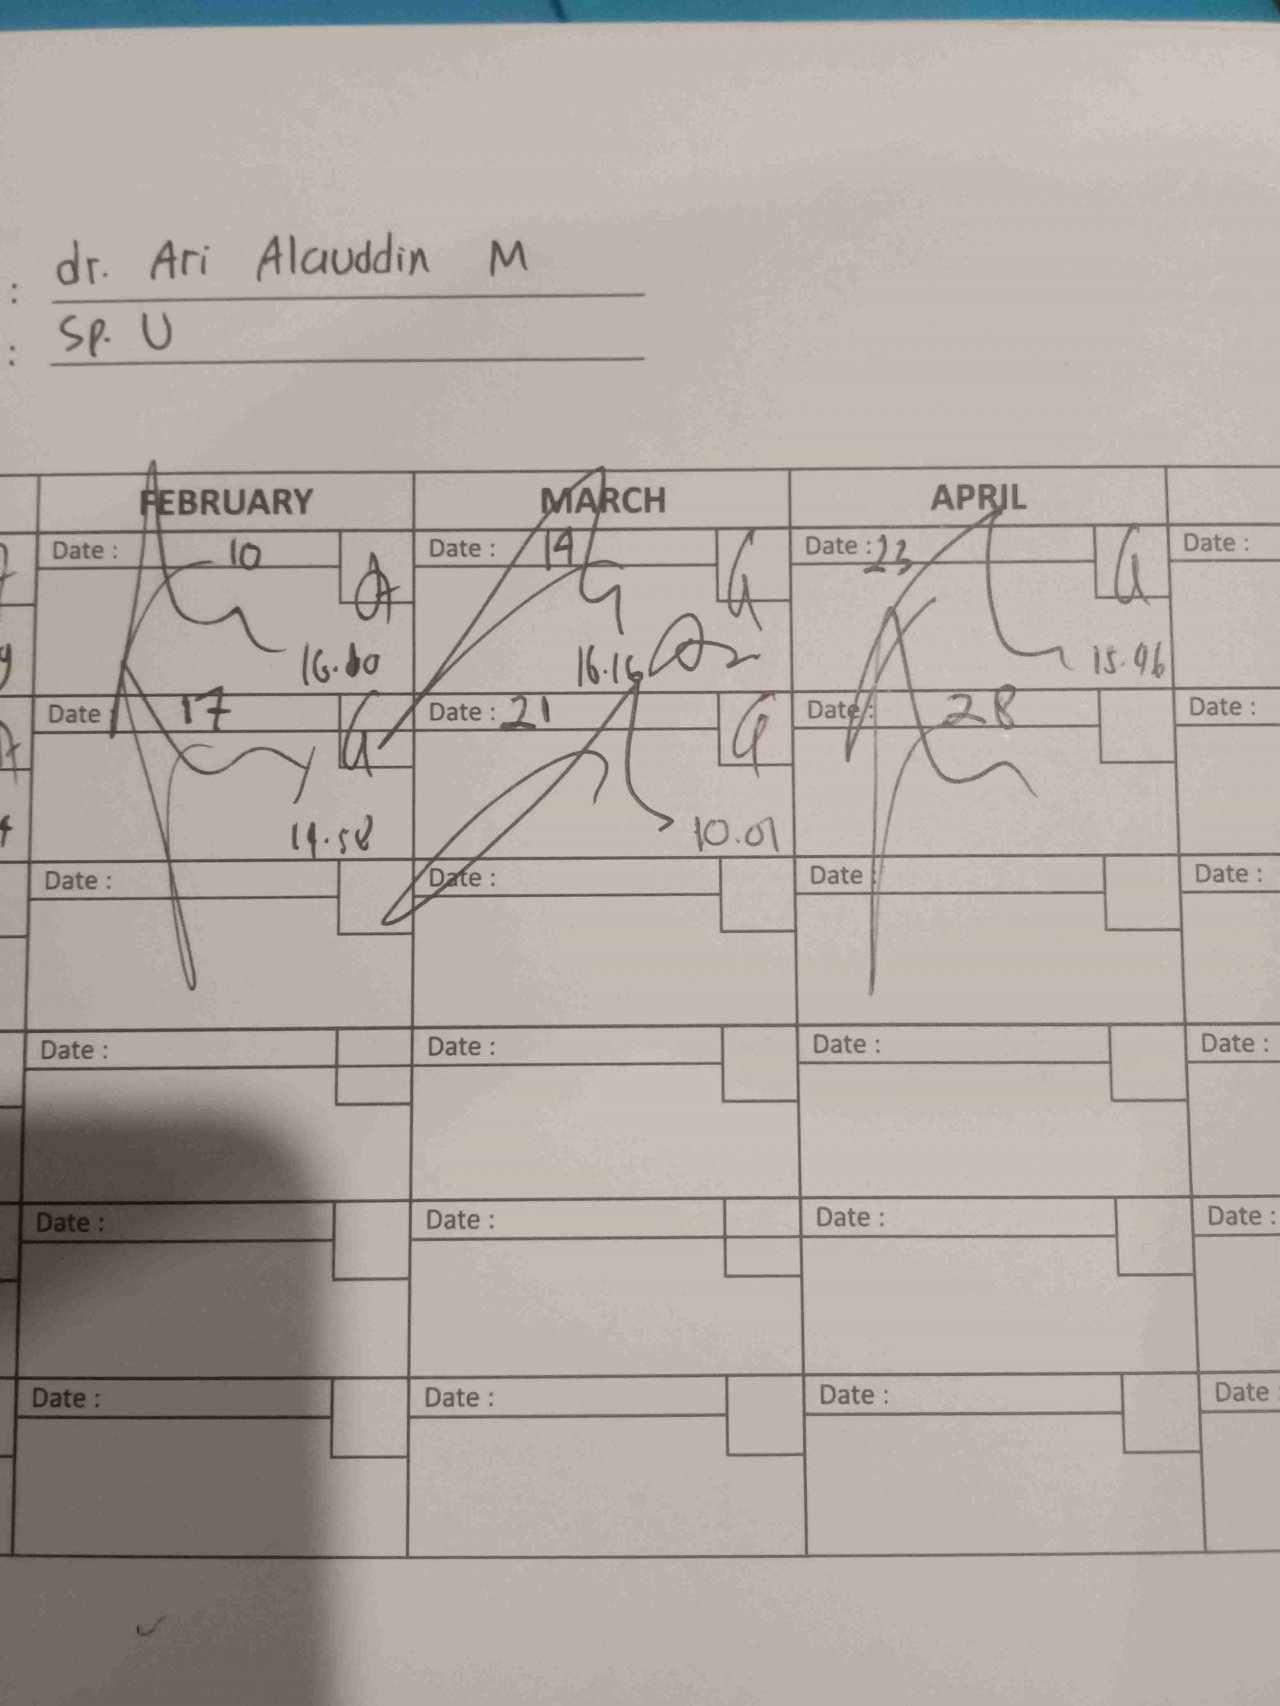 : dr. Ari Alauddin M
: Sp. U
FEBRUARY MARCH APRIL
Date : 10 Date : 14 Date : 23 Date :
16.16
Date : 17 Date : 21 Date : 28 Date :
14.58 10.01
Date : Date : Date : Date :
Date : Date : Date : Date :
Date : Date : Date : Date :
Date : Date : Date : Date